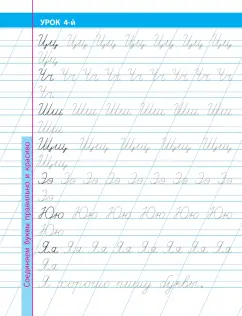 УРОК 4-й
Соединяем буквы правильно и красиво
Цц Цц Цц Цц Цц Цц Цц
Цц
Чч Чч Чч Чч Чч Чч Чч Чч
Чч
Шш Шш Шш Шш Шш Шш
Шш
Щщ Щщ Щщ Щщ Щщ Щщ
Щщ
Ээ Ээ Ээ Ээ Ээ Ээ Ээ Ээ
Ээ
Юю Юю Юю Юю Юю Юю
Юю
Яя Яя Яя Яя Яя Яя Яя Яя
Яя
Я хорошо пишу буквы.